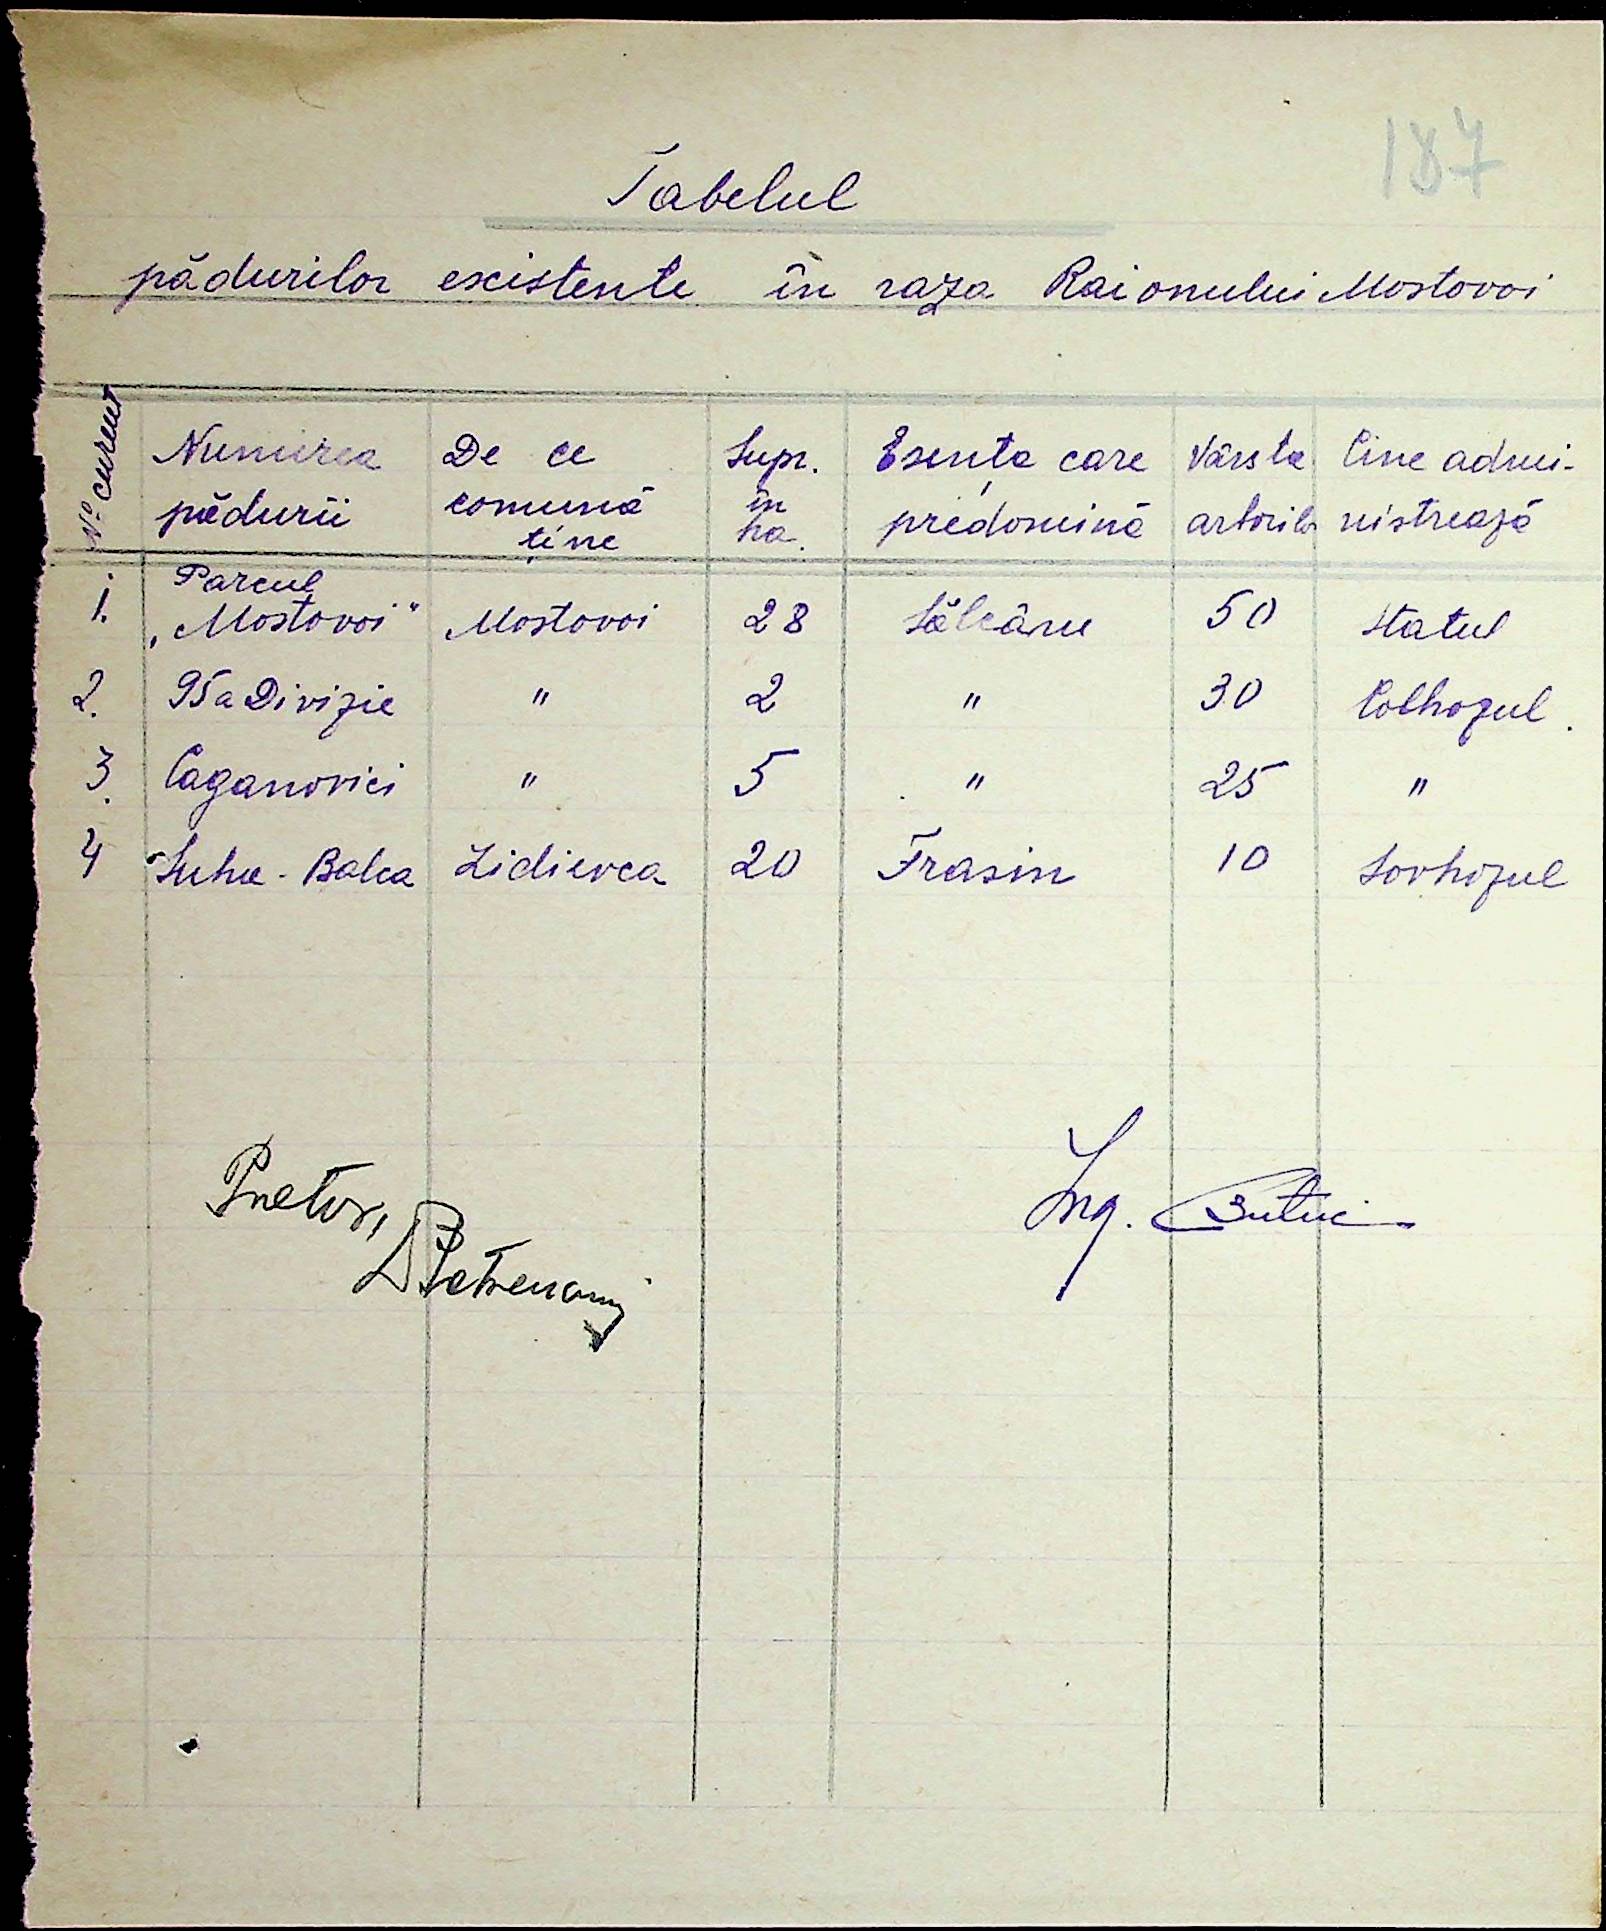 187
Tabelul
pădurilor existente în raza Raionului Mostovoi
No curent | Numirea pădurii | De ce comună ține | Supr. în ha. | Esența care predomină | Vârsta arborilor | Cine administrează
1. | Parcul „Mostovoi" | Mostovoi | 28 | Sălcâm | 50 | Statul
2. | 95a Divizie | " | 2 | " | 30 | Colhozul.
3. | Caganovici | " | 5 | " | 25 | "
4 | Suha-Balca | Lidievca | 20 | Frasin | 10 | Sovhozul
Pretor,
Ing.